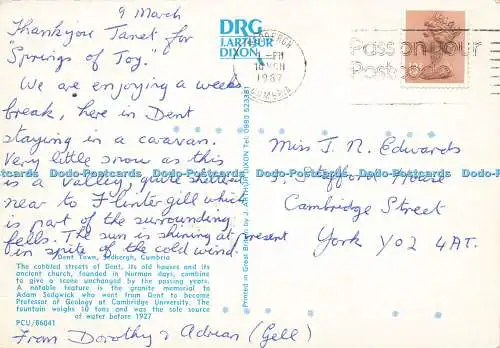 9 March
Thankyou Janet for
"Springs of Joy.
We are enjoying a weeks
break, here in Dent
staying in a caravan.
Very little snow as this
is a valley, quite sheltered
near to Flintergill which
is part of the surrounding
fells. The sun is shining at present
in spite of the cold wind.
Dent Town, Sedbergh, Cumbria
The cobbled streets of Dent, its old houses and its
ancient church, founded in Norman days, combine
to give a scene unchanged by the passing years.
A notable feature is the granite memorial to
Adam Sedgwick who went from Dent to become
Professor of Geology at Cambridge University. The
fountain weighs 10 tons and was the sole source
of water before 1927
PCU/86041
From Dorothy & Adrian (Gell)
DRG
J. ARTHUR
DIXON
Printed in Great Britain by J. ARTHUR DIXON Tel. 0983 523381
SEDBERGH
1987
CUMBRIA
Pass on your
Postcode
Miss J. N. Edwards
Stafford House
Cambridge Street
York YO2 4AT.
Dodo-Postcards Dodo-Postcards Dodo-Postcards Dodo-Postcards